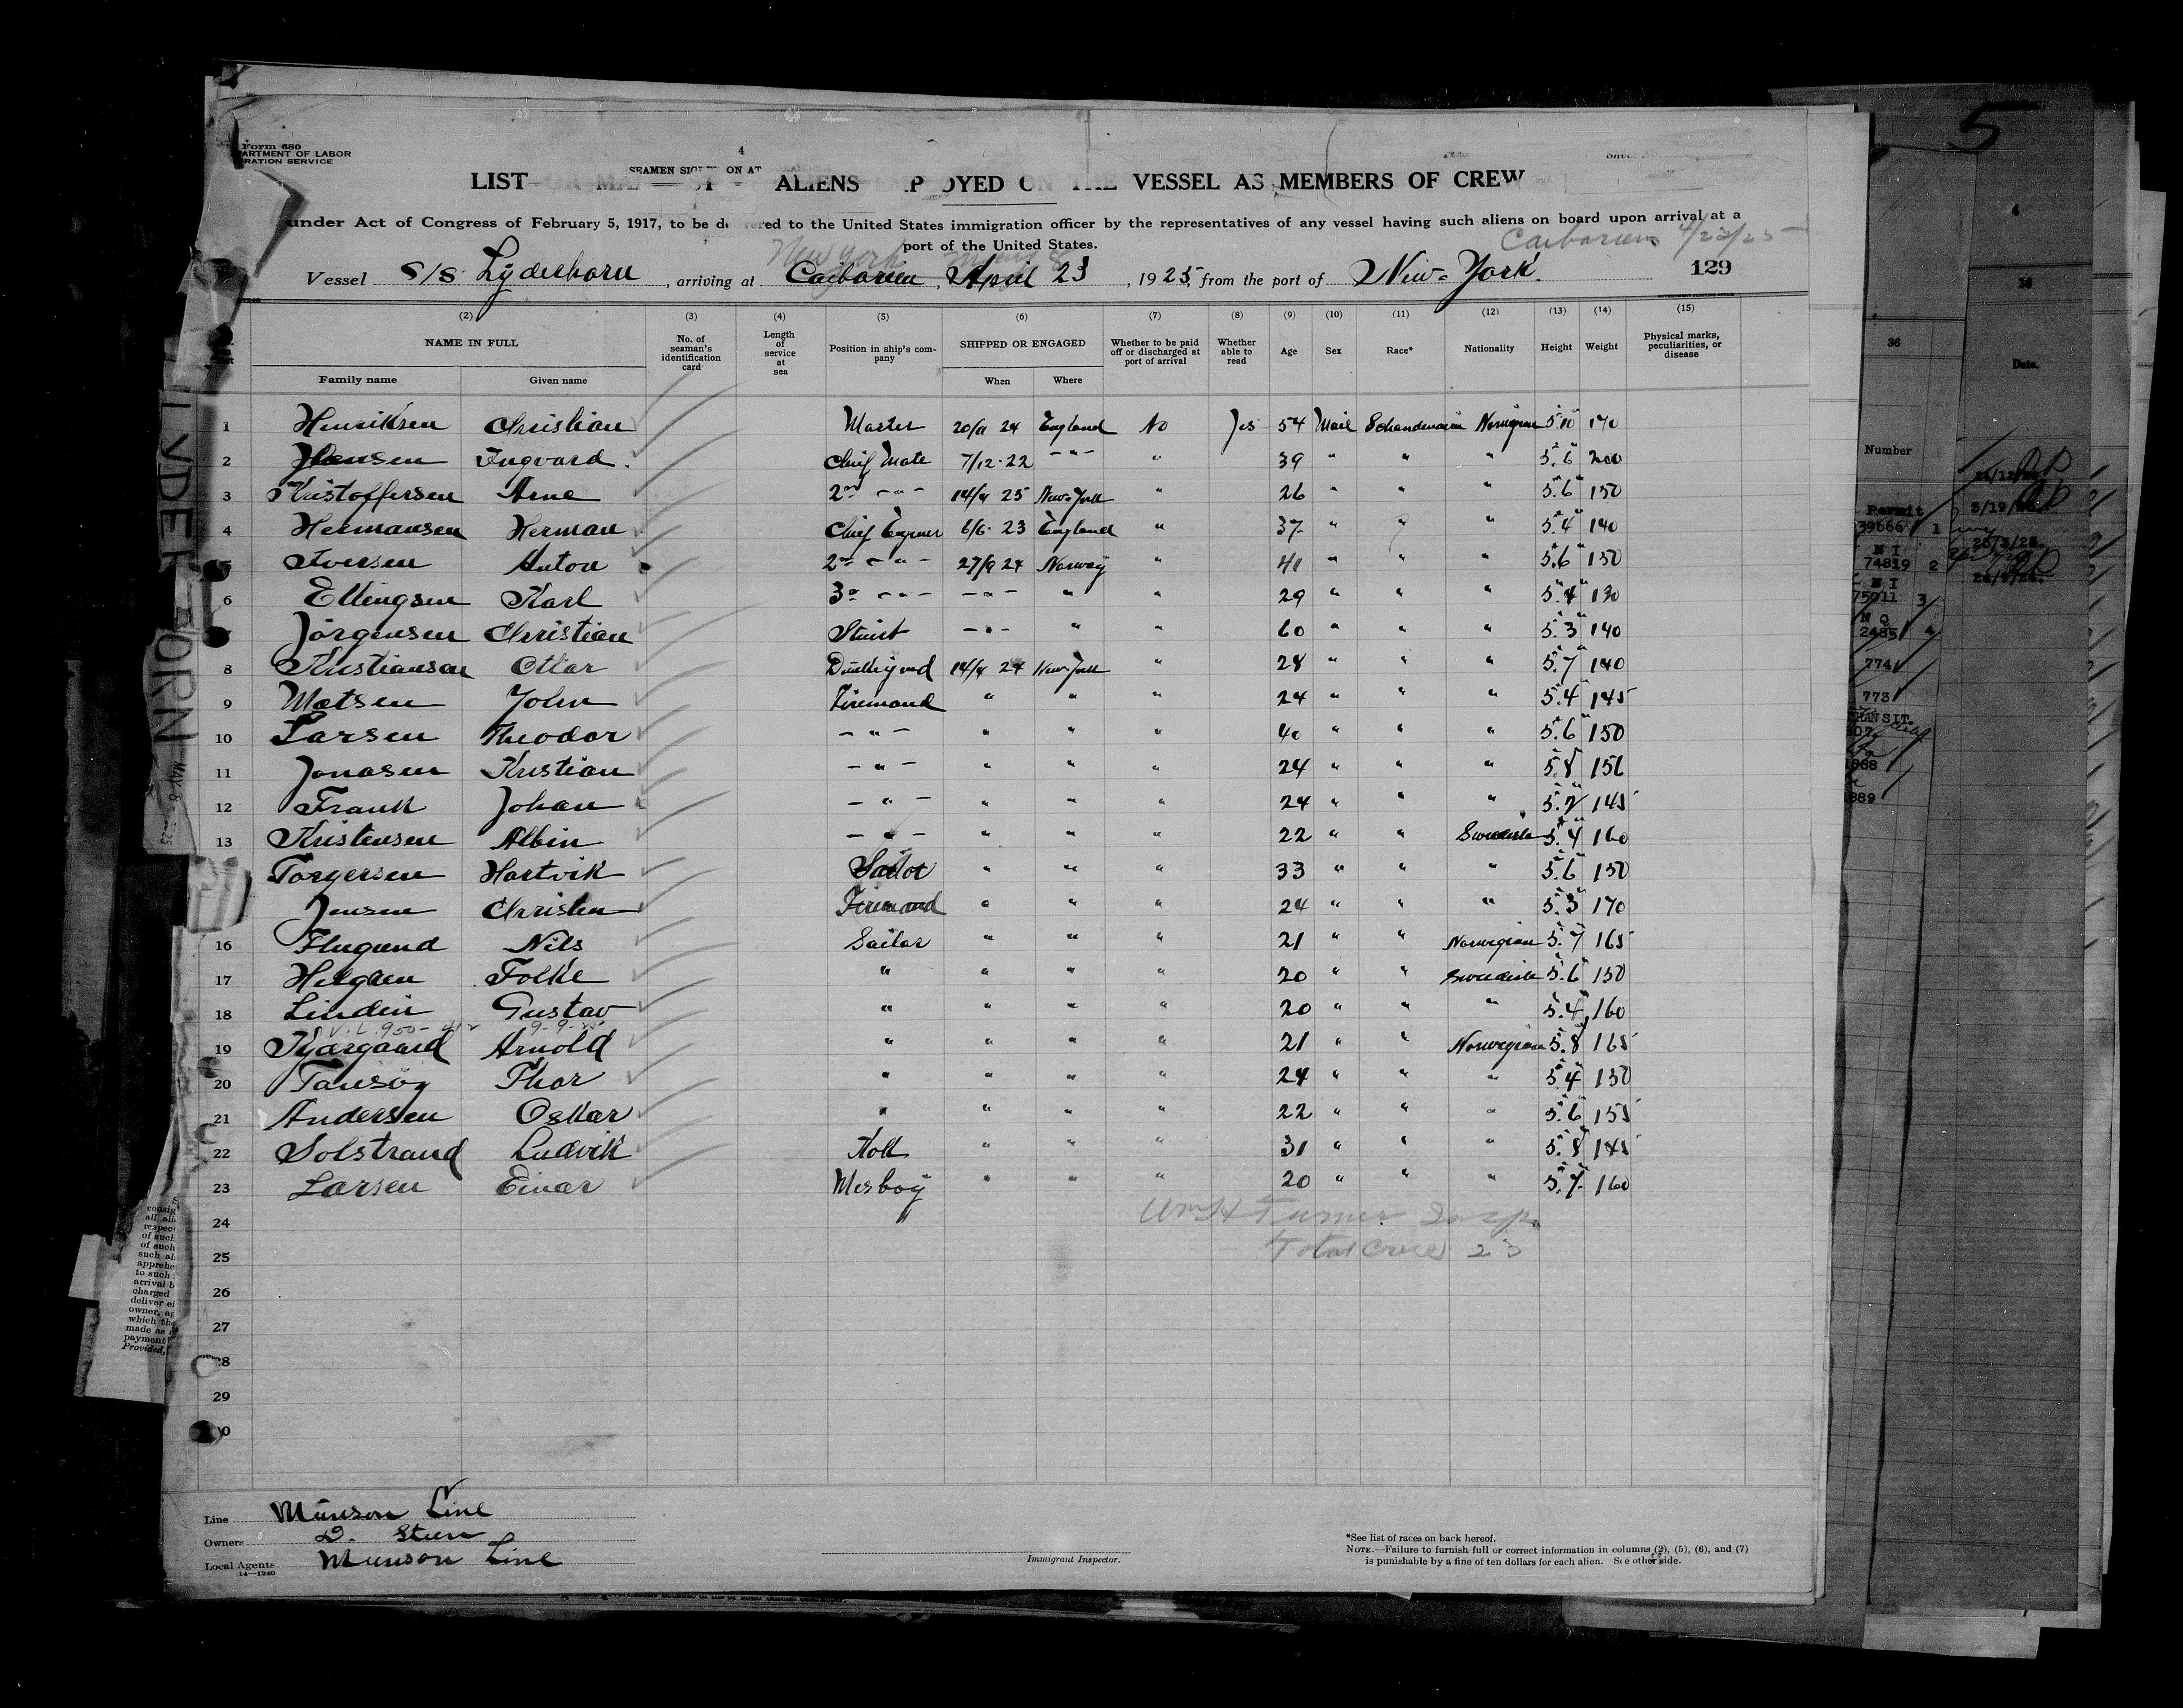 Form 680
ARTMENT OF LABOR
RATION SERVICE
4
LIST ALIENS VESSEL AS MEMBERS OF CREW
under Act of Congress of February 5, 1917, to be delivered to the United States immigration officer by the representatives of any vessel having such aliens on board upon arrival at a
port of the United States.
New York Caibarien 4/23/25
Vessel S/S Lyderhorn, arriving at Caibarien, April 23, 1925, from the port of New-York. 129
(2) (3) (4) (5) (6) (7) (8) (9) (10) (11) (12) (13) (14) (15)
NAME IN FULL No. of seaman's identification card Length of service at sea Position in ship's company SHIPPED OR ENGAGED Whether to be paid off or discharged at port of arrival Whether able to read Age Sex Race* Nationality Height Weight Physical marks, peculiarities, or disease
Family name Given name When Where
1 Henriksen Christian Master 20/11 24 England No Yes 54 Male Schandenavia Norwigian 5'10" 170
2 Hansen Ingvard. Chief Mate 7/12-22 -"- " 39 " " " 5'.6" 200
3 Kristoffersen Arne 2nd -"- 14/4 25 New-York " 26 " " " 5'.6" 150
4 Hermansen Herman Chief 6/6-23 England " 37 " " " 5'.4" 140
5 Iversen Anton 2nd -"- 27/9 24 Norway " 41 " " " 5'.6" 150
6 Ellingsen Karl 3d -"- -"- " " 29 " " " 5'.4" 130
7 Jörgensen Christian -"- " " 60 " " " 5'.3" 140
8 Kristiansen Ottar 14/4 24 New-York " 28 " " " 5'.7" 140
9 Matsen John Firemand " " " 24 " " " 5'.4" 145
10 Larsen Theodor -"- " " " 40 " " " 5'.6" 150
11 Jonasen Kristian -"- " " " 24 " " " 5'.8" 156
12 Frank Johan -"- " " " 24 " " " 5'.7" 145
13 Kristensen Albin -"- " " " 22 " " Swedish 5'.4" 160
Torgersen Hartvik Sailor " " " 33 " " " 5'.6" 150
Jensen Christen Firemand " " " 24 " " " 5'.3" 170
16 Nils Sailor " " " 21 " " Norwegian 5'.7" 165
17 Helgren Folke " " " " 20 " " Swedish 5'.6" 150
18 Lindin Gustav " " " " 20 " " " 5'.4" 160
19 Kjærgaard Arnold " " " " 21 " " Norwegian 5'.8" 165
20 Thor " " " " 24 " " " 5'.4" 150
21 Andersen Oskar " " " " 22 " " " 5'.6" 155
22 Solstrand Ludvik Kok " " " 31 " " " 5'.8" 145
23 Larsen Einar Mesboy " " " 20 " " " 5'.7" 160
24 Wm H Turner Insp.
25 Total Crew 23
26
27
28
29
30
Line Munson Line
Owners D. Steen
Local Agents Munson Line
14—1240
Immigrant Inspector.
*See list of races on back hereof.
NOTE.—Failure to furnish full or correct information in columns (2), (5), (6), and (7)
is punishable by a fine of ten dollars for each alien. See other side.
5
4
36
Date.
Number
Permit
39666 1
N I
74819 2
N I
75011 3
N Q
2485 4
774
773